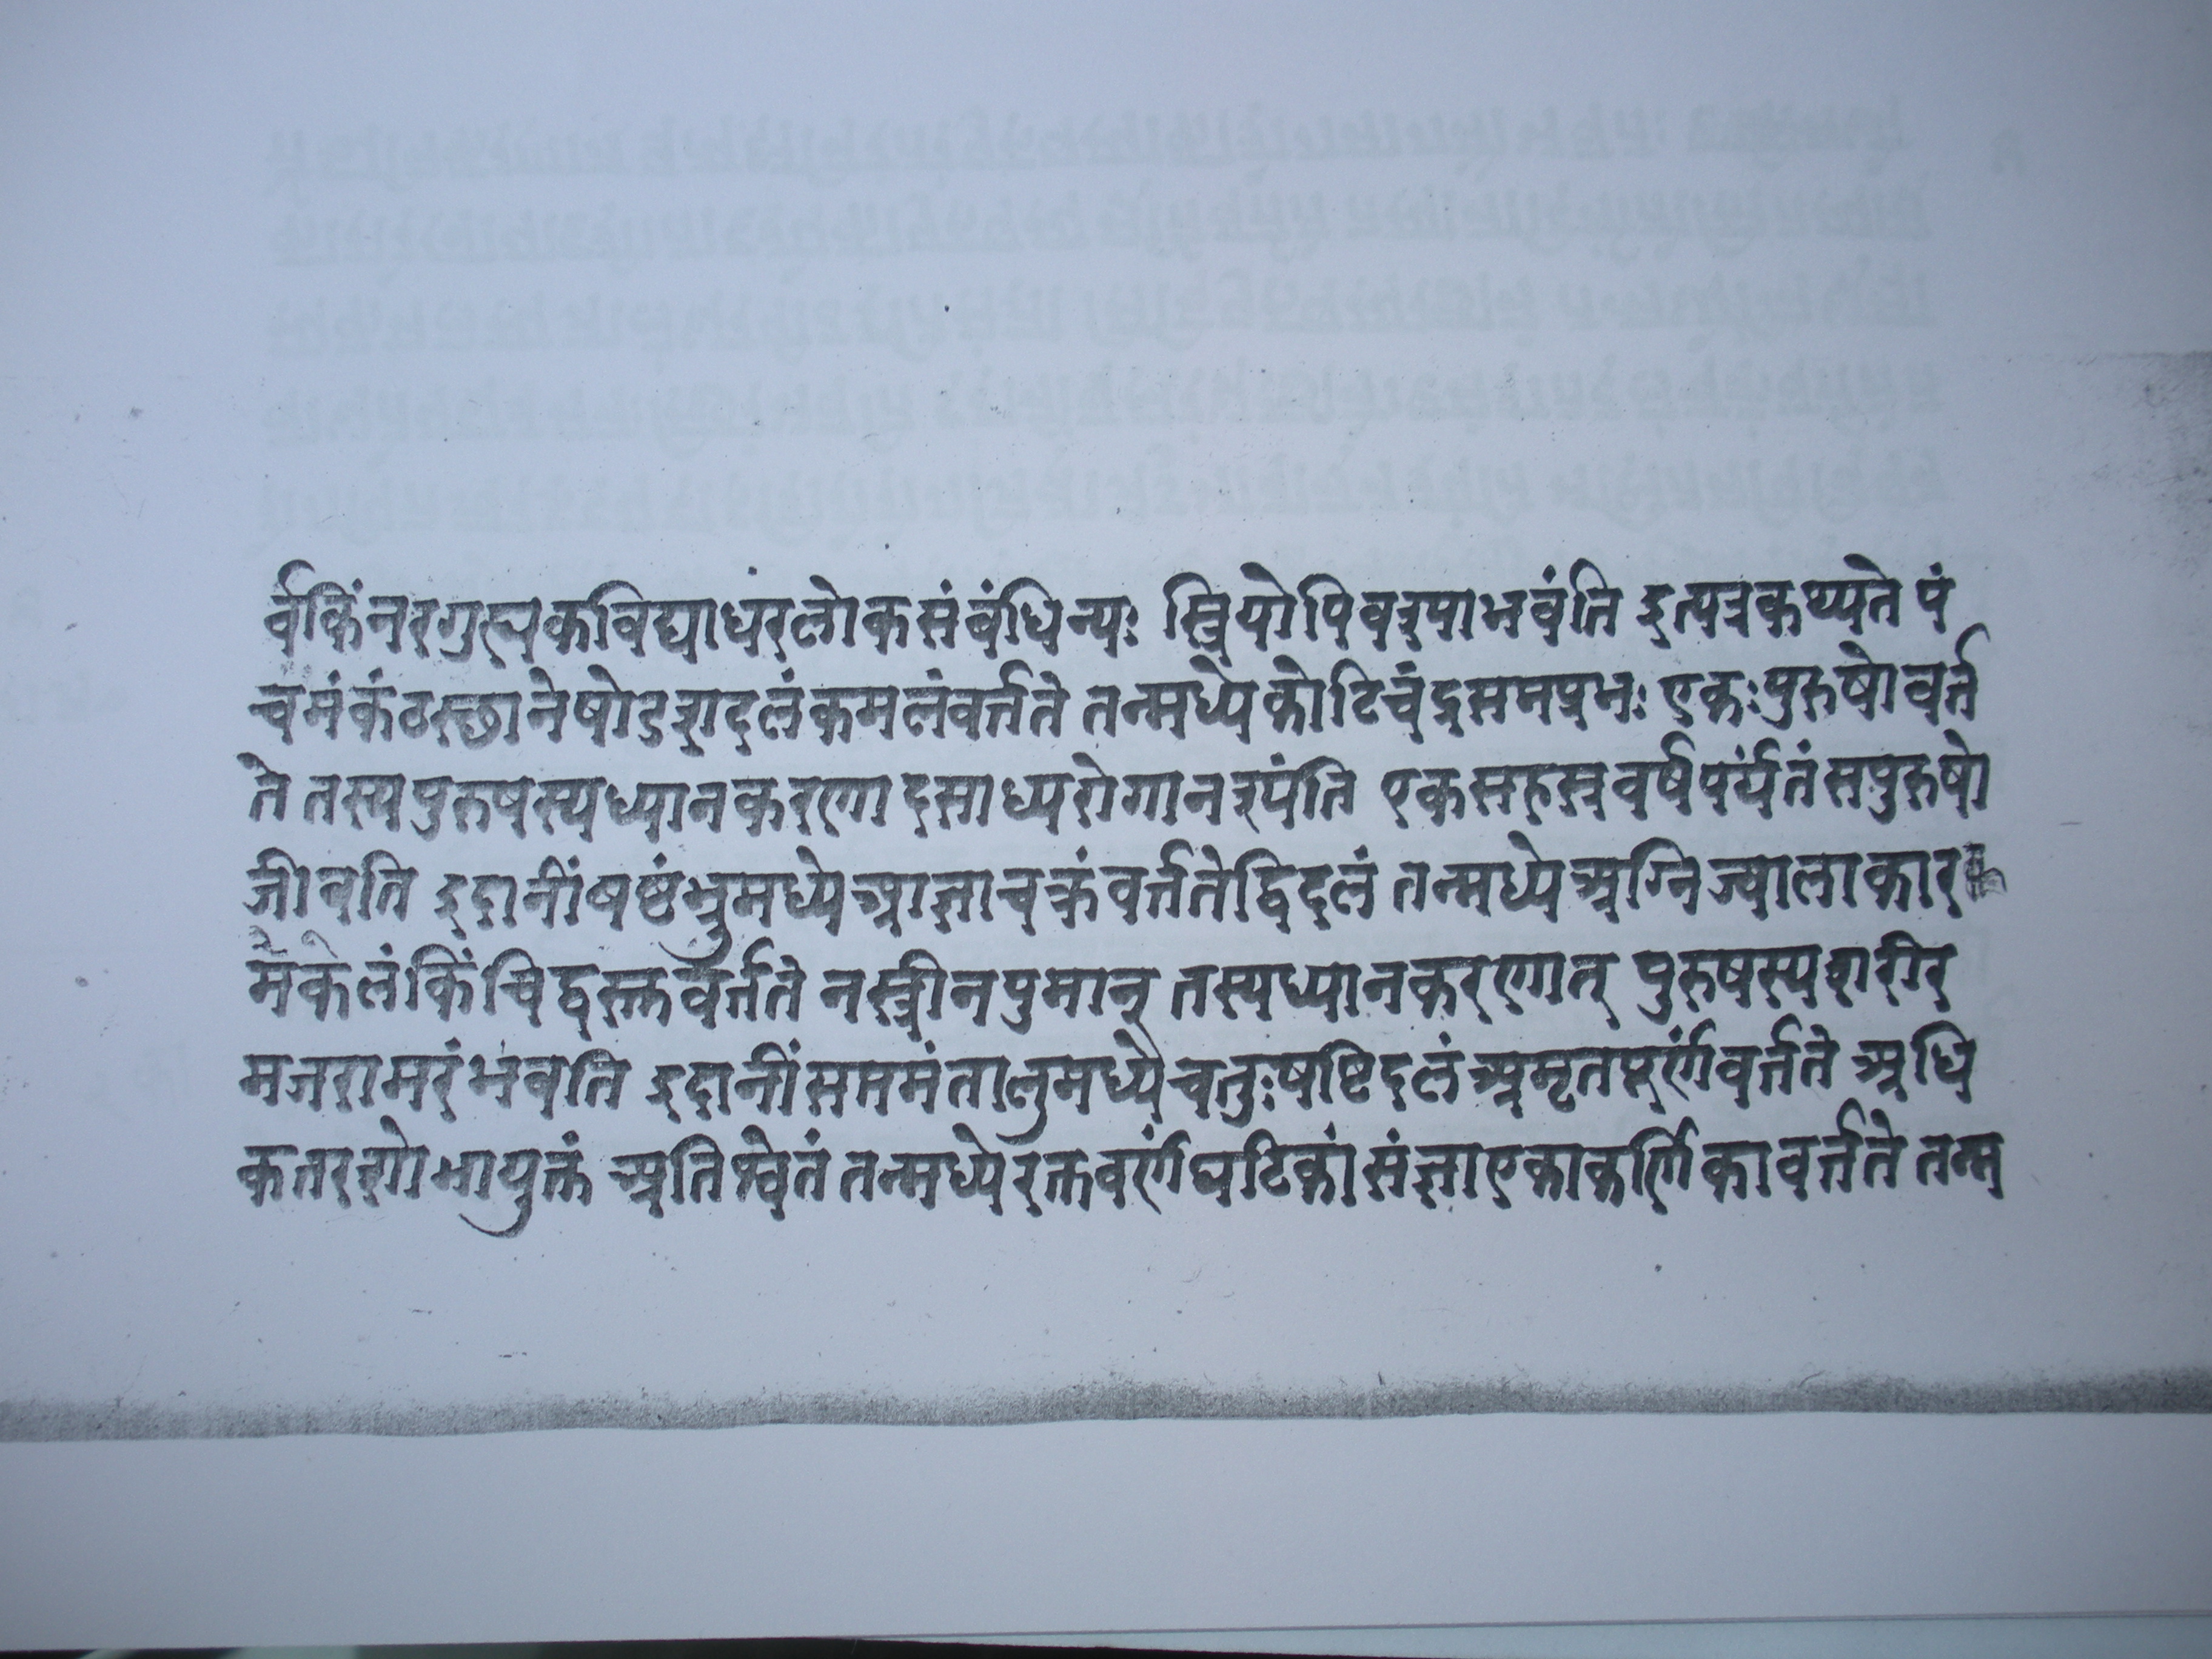 र्वकिंनरगुह्यकविद्याधरलोकसंबंधिन्यः स्त्रियोपिवश्याभवंति इत्यत्रकथ्यते पं
चमंकंठस्छानेषोडशदलंकमलंवर्त्तते तन्मध्येकोटिचंद्रसमप्रभः एकःपुरुषोवर्त्त
ते तस्यपुरुषस्यध्यानकरणादसाध्यरोगानश्यंति एकसहस्रवर्षपर्यंतंसपुरुषो
जीवति इदानींषष्ठंभ्रुमध्येआज्ञाचक्रंवर्त्ततेद्विदलं तन्मध्येअग्निज्वालाकार
मेकलंकिंचिद्वस्तुवर्त्तते नस्त्रीनपुमान् तस्यध्यानकरणात् पुरुषस्यशरीर
मजरामरंभवति इदानींसप्तमंतालुमध्येचतुःषष्टिदलंअमृतपूर्णंवर्त्तते अधि
कतरशोभायुक्तं अतिश्वेतं तन्मध्येरक्तवर्णंघटिकांसंज्ञाएकाकर्णिकावर्त्तते तन्म